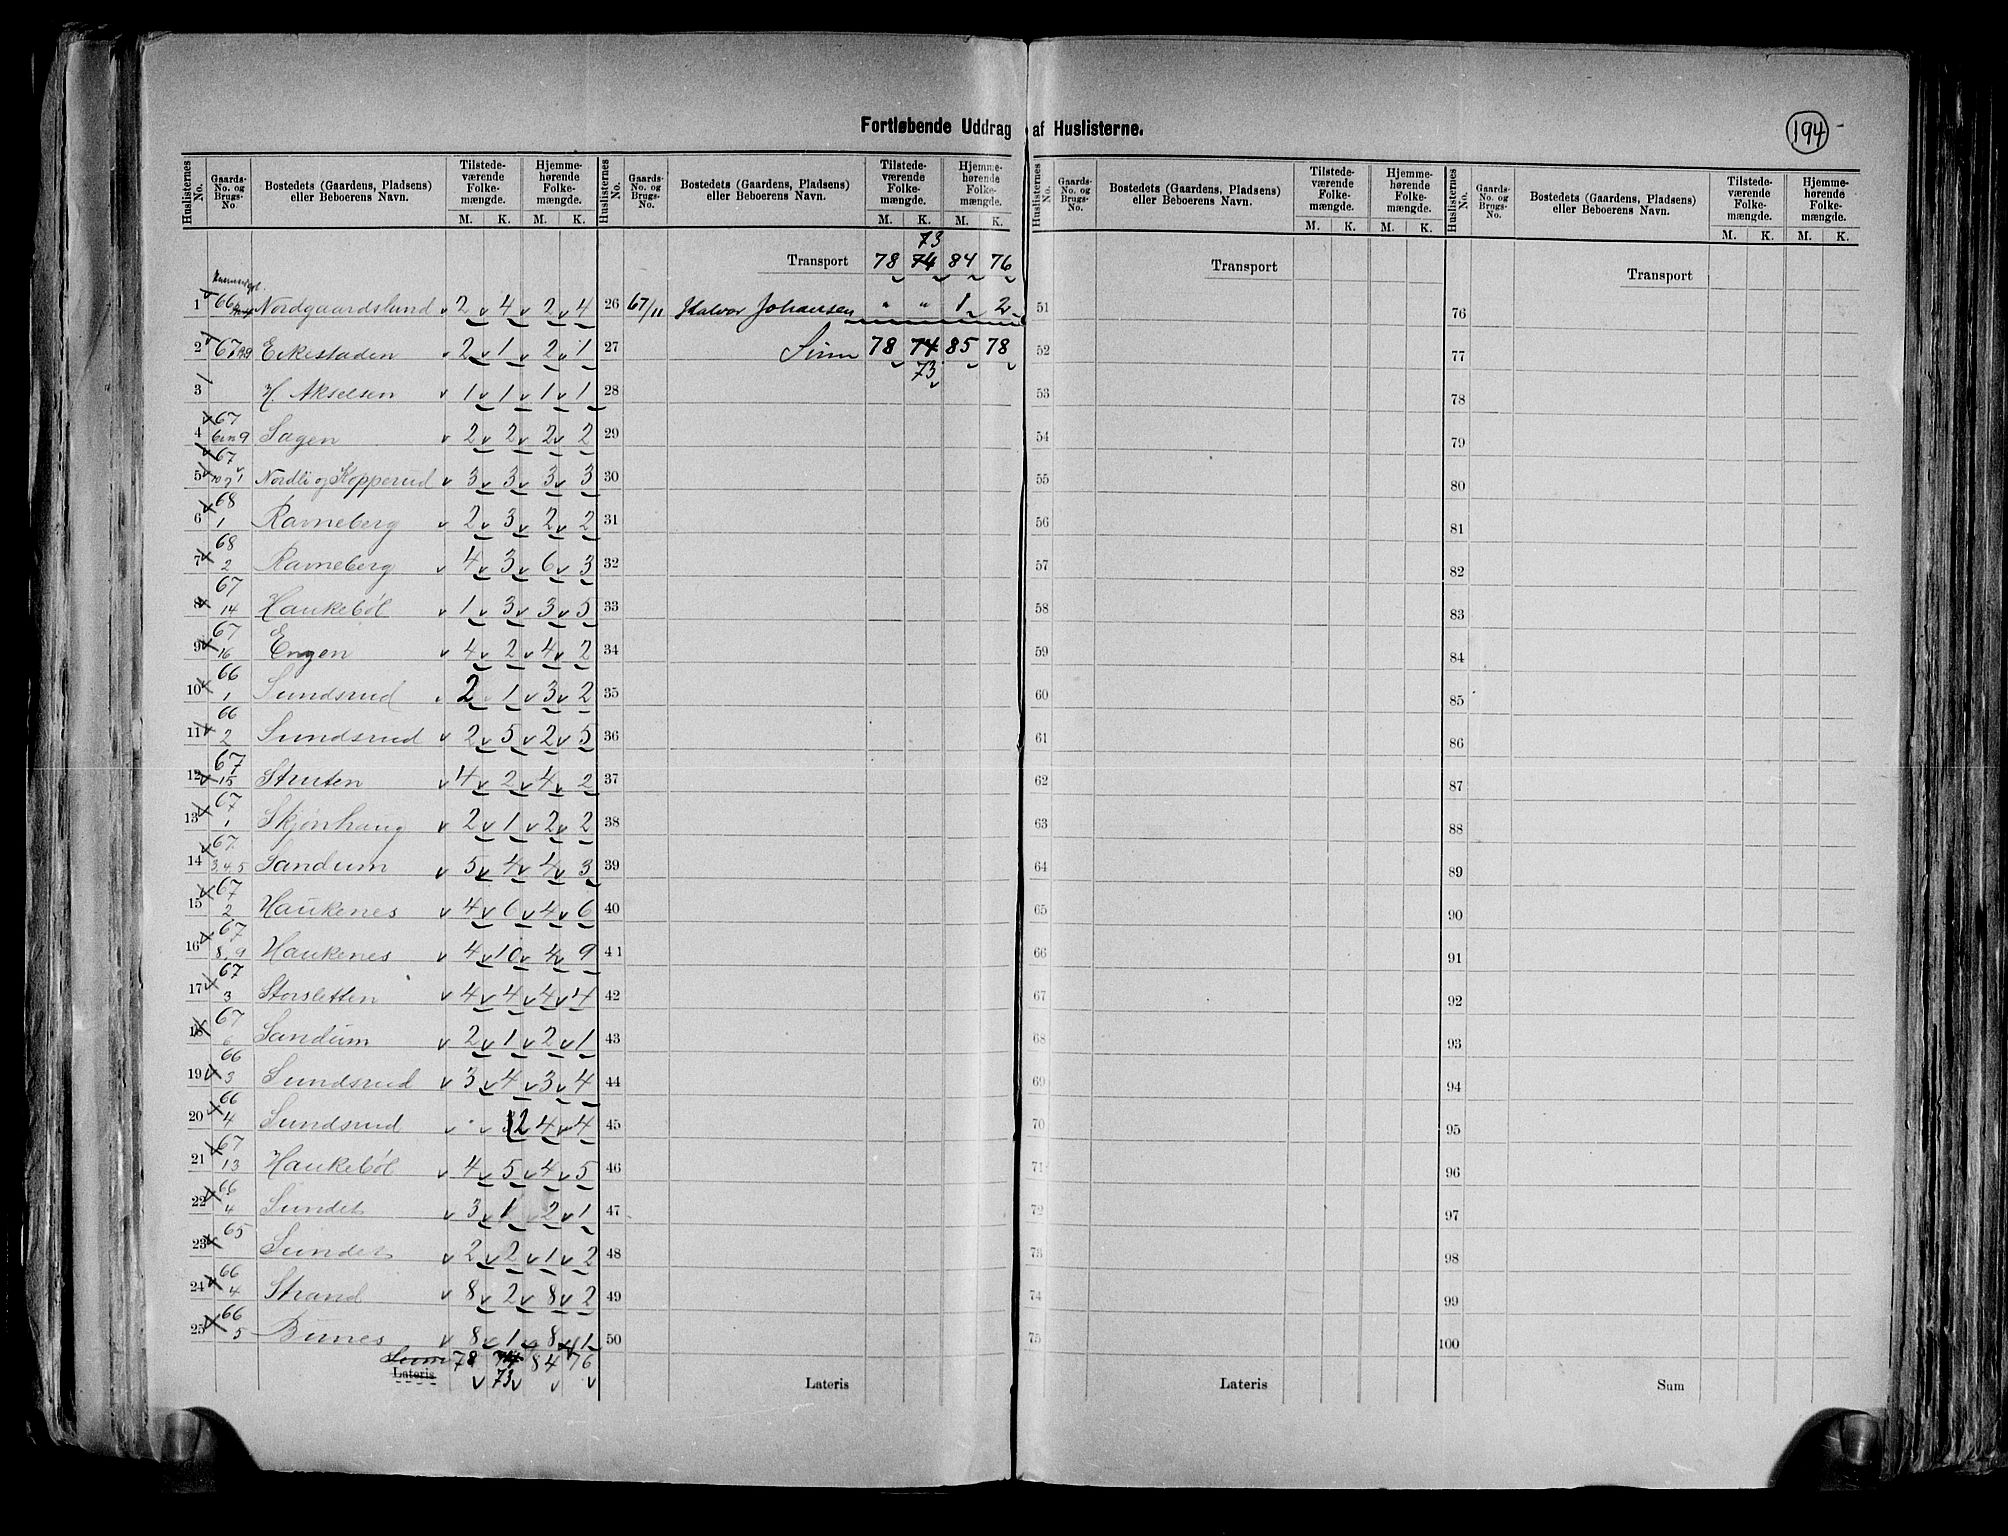 194
Fortløbende Uddrag af Huslisterne.
Huslisternes No. Gaards-No. og Brugs-No. Bostedets (Gaardens, Pladsens) eller Beboerens Navn. Tilstedeværende Folkemængde. M. K. Hjemmehørende Folkemængde. M. K.
1 66 Nordgaardslund 2 4 2 4
2 67 Eikestaden 2 1 2 1
3 H. Akselsen 1 1 1 1
4 67 Sagen 2 2 2 2
5 67 Nordli og Kopperud 3 3 3 3
6 68 1 Ravneberg 2 3 2 2
7 68 2 Ravneberg 4 3 6 3
8 67 14 Haukebøl 1 3 3 5
9 67 16 Engen 4 2 4 2
10 66 1 Sundsrud 2 1 3 2
11 66 2 Sundsrud 2 5 2 5
12 67 15 Stenten 4 2 4 2
13 67 1 Skjønhaug 2 1 2 2
14 67 3,4,5 Sandum 5 4 4 3
15 67 2 Haukenes 4 6 4 6
16 67 8,9 Haukenes 4 10 4 9
17 67 3 Storsletten 4 4 4 4
18 67 6 Sandum 2 1 2 1
19 66 3 Sundsrud 3 4 3 4
20 66 4 Sundsrud " 2 4 4
21 67 13 Haukebøl 4 5 4 5
22 66 4 Sundet 3 1 2 1
23 65 Sundet 2 2 1 2
24 66 4 Strand 8 2 8 2
25 66 5 Bunes 8 1 8 1
Sum 78 74 84 76
Lateris 73
Huslisternes No. Gaards-No. og Brugs-No. Bostedets (Gaardens, Pladsens) eller Beboerens Navn. Tilstedeværende Folkemængde. M. K. Hjemmehørende Folkemængde. M. K.
73
Transport 78 74 84 76
26 67/11 Halvor Johansen " " 1 2
27 Sum 78 74 85 78
73
28
29
30
31
32
33
34
35
36
37
38
39
40
41
42
43
44
45
46
47
48
49
50
Lateris
Huslisternes No. Gaards-No. og Brugs-No. Bostedets (Gaardens, Pladsens) eller Beboerens Navn. Tilstedeværende Folkemængde. M. K. Hjemmehørende Folkemængde. M. K.
Transport
51
52
53
54
55
56
57
58
59
60
61
62
63
64
65
66
67
68
69
70
71
72
73
74
75
Lateris
Huslisternes No. Gaards-No. og Brugs-No. Bostedets (Gaardens, Pladsens) eller Beboerens Navn. Tilstedeværende Folkemængde. M. K. Hjemmehørende Folkemængde. M. K.
Transport
76
77
78
79
80
81
82
83
84
85
86
87
88
89
90
91
92
93
94
95
96
97
98
99
100
Sum